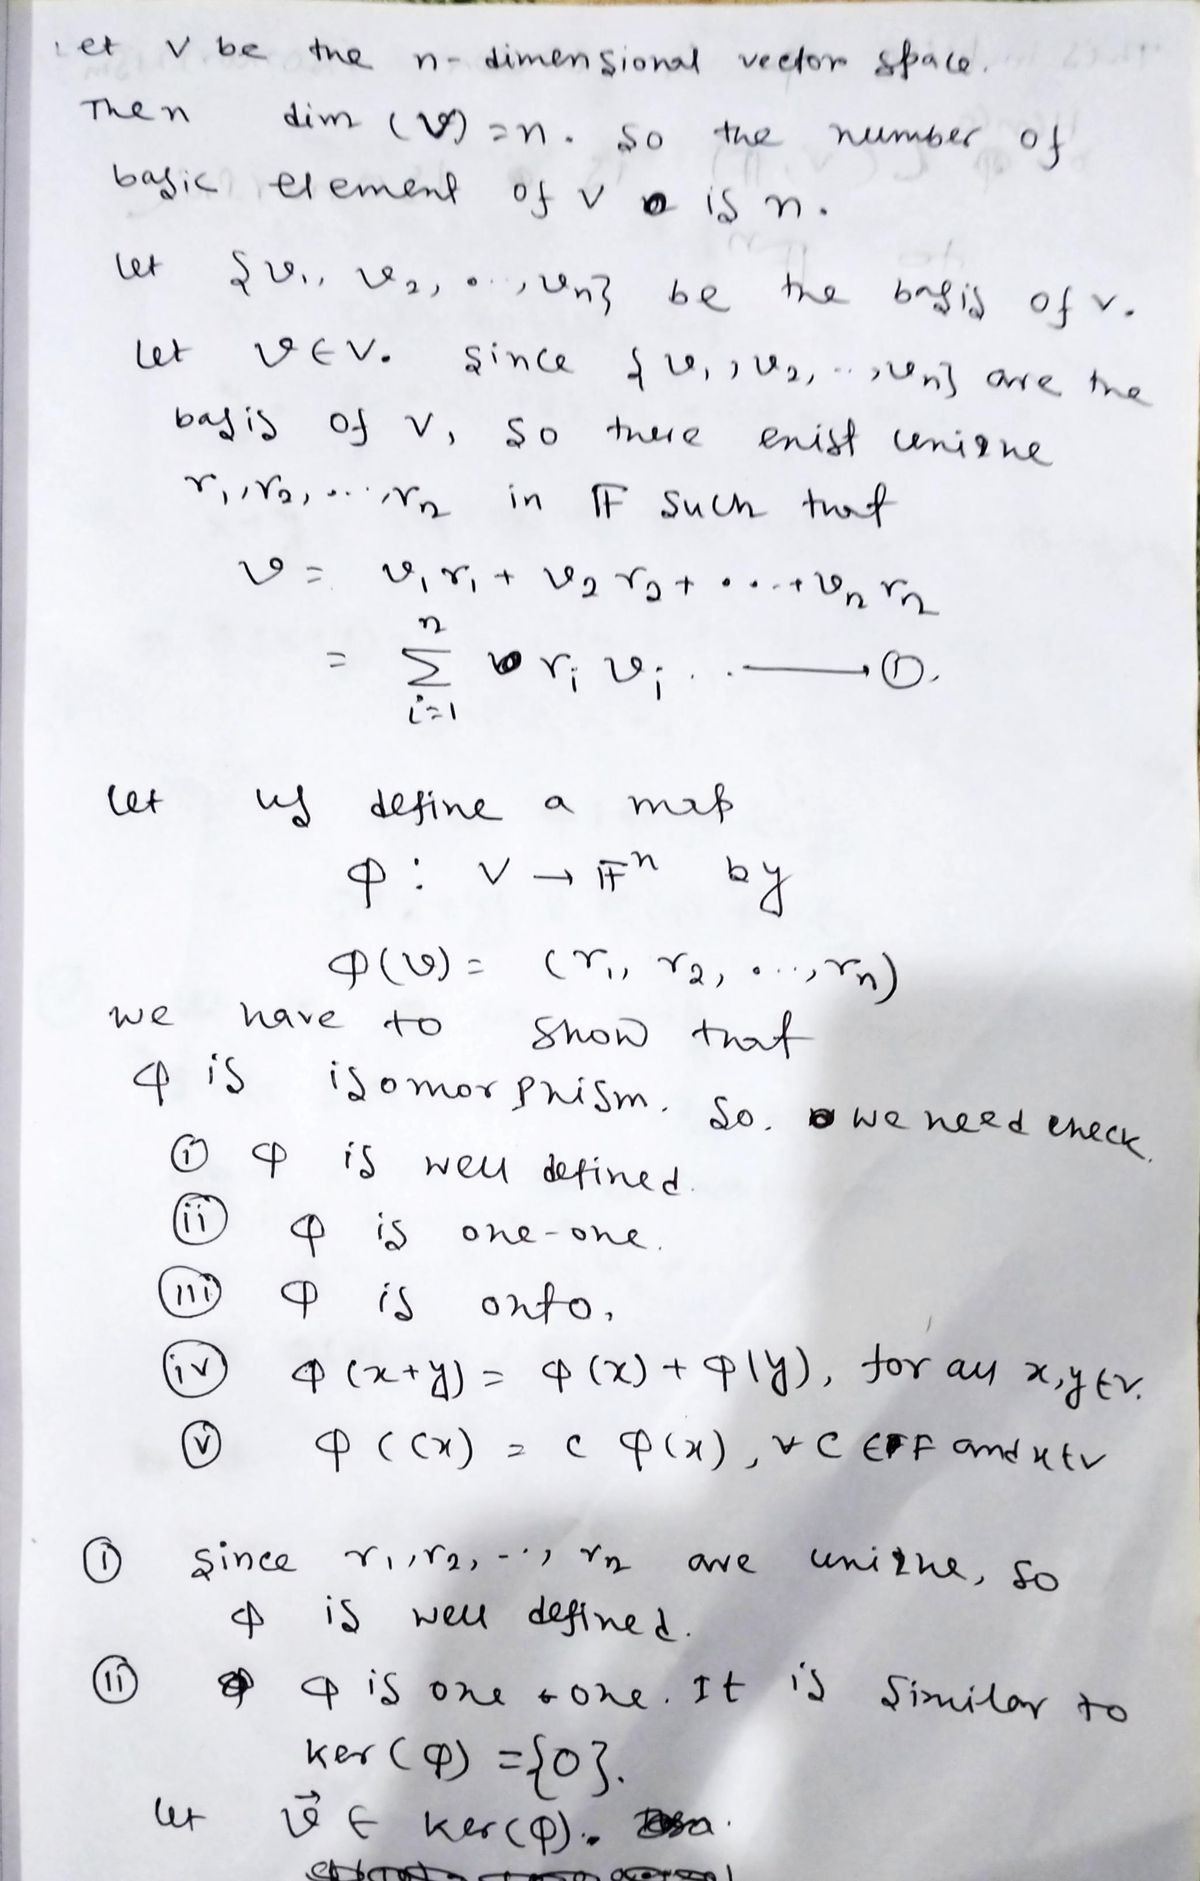 Let V be the n-dimensional vector space.
Then dim (V) = n. So the number of
basic element of V is n.
Let {v1, v2, ..., vn} be the basis of V.
Let v ∈ V. Since {v1, v2, .., vn} are the
basis of V, so there exist unique
r1, r2, ..., rn in F such that
v = v1 r1 + v2 r2 + ... + vn rn
= ∑_{i=1}^{n} ri vi .. ⟶ ①.
Let us define a map
φ : V → F^n by
φ(v) = (r1, r2, ..., rn)
we have to show that
φ is isomorphism. So. we need check.
(i) φ is well defined.
(ii) φ is one-one.
(iii) φ is onto.
(iv) φ(x+y) = φ(x) + φ(y), for all x,y ∈ V.
(v) φ(cx) = c φ(x), ∀ c ∈ F and x ∈ V
(i) Since r1, r2, .., rn are unique, so
φ is well defined.
(ii) φ is one-one. It is similar to
ker(φ) = {0}.
Let v⃗ ∈ ker(φ).